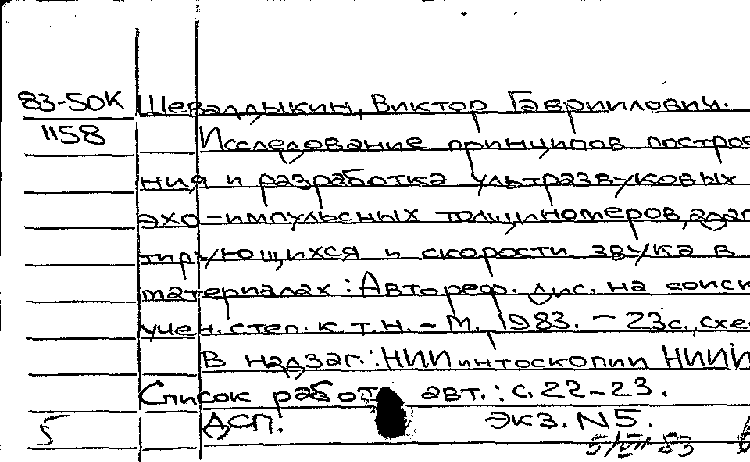 83-50К Шевалдыкин, Виктор Гавриилович.
1158 Исследование принципов построе
ния и разработка ультразвуковых
эхо-импульсных толщиномеров, адап
тирующихся к скорости звука в
материалах: Автореф. дис. на соиск
учен. степ. к.т.н. - М. 1983. - 23с., схе
В надзаг.: НИИ интоскопии НИИИН
Список работ авт.: с. 22-23.
5 ДСП. экз. N5.
5/VII 83